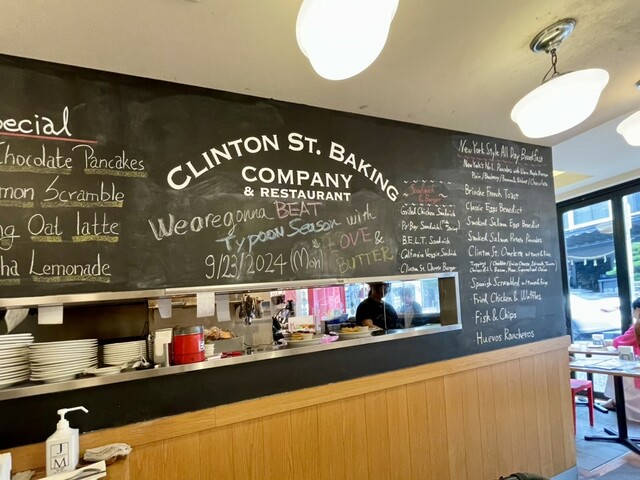 ecial
Chocolate Pancakes
mon Scramble
ng Oat latte
ha Lemonade
CLINTON ST. BAKING
COMPANY
& RESTAURANT
We are gonna BEAT
Typoon Season with
LOVE &
BUTTER!
9/23/2024 (Mon)
& Burger
Grilled Chicken Sandwich
Po'Boy Sandwich
B.E.L.T. Sandwich
California Veggie Sandwich
Clinton St. Cheese Burger
New York Style All Day Breakfast
New York's No.1 Pancakes with Warm Maple Butter
Brioche French Toast
Classic Eggs Benedict
Smoked Salmon Eggs Benedict
Smoked Salmon Potato Pancakes
Clinton St. Omelette
Spanish Scrambled
Fried Chicken & Waffles
Fish & Chips
Huevos Rancheros
J
M